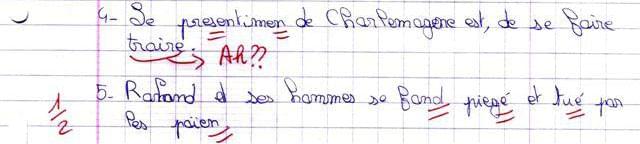 4- Le presentimen de Charlemagene est, de se faire
traire. Ah??
5- Roland et ses hommes se fond piegé et tué par
1/2
les paien